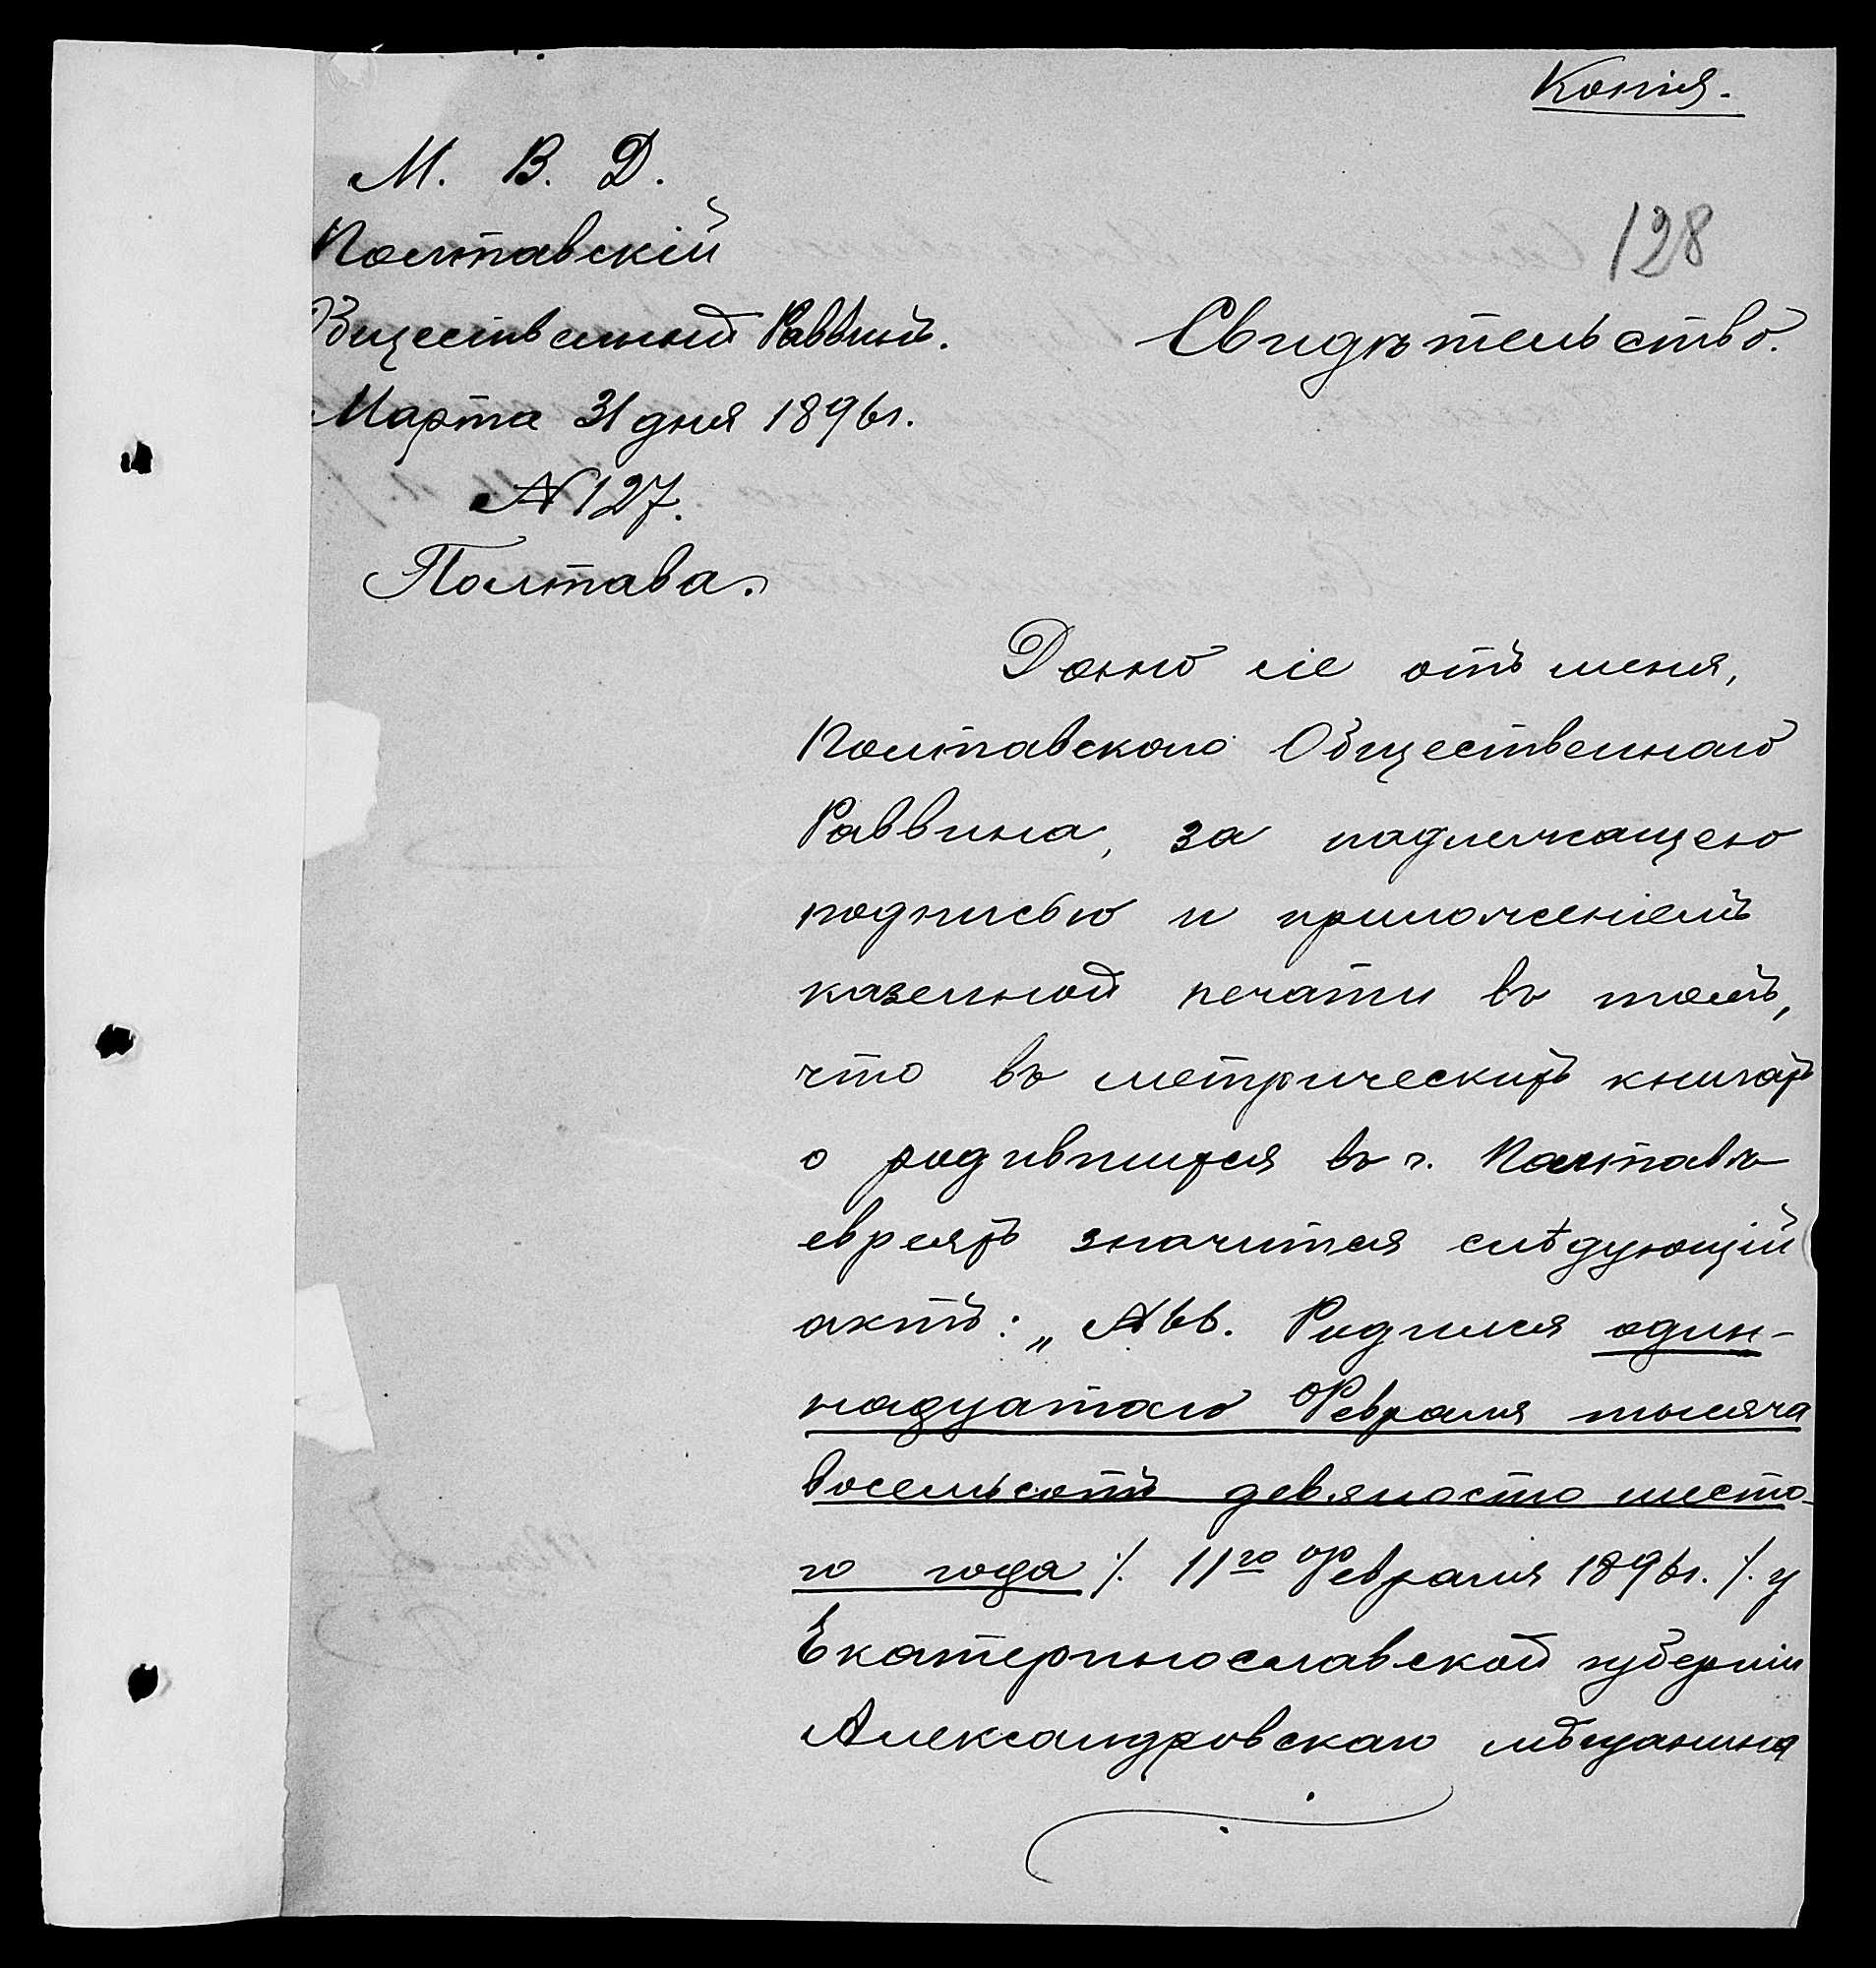 Копія.
М. В. Д.
128
Полтавскій
Общественный Раввинъ.
Свидѣтельство.
Марта 31 дня 1896 г.
№ 127.
Полтава.
Дано сіе отъ меня,
Полтавскаго Общественнаго
Раввина, за надлежащею
подписью и приложеніемъ
казенной печати въ томъ,
что въ метрическихъ книгахъ
о родившихся въ г. Полтавѣ
евреяхъ значится слѣдующій
актъ: „№ 66. Родился один-
надцатаго Февраля тысяча
восемьсотъ девяносто шесто-
го года /. 11го Февраля 1896 г. /. у
Екатеринославской губерніи
Александровскаго мѣщанина